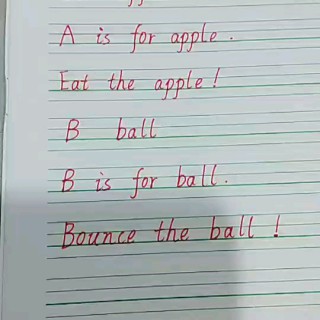 A is for apple.
Eat the apple!
B ball
B is for ball.
Bounce the ball!